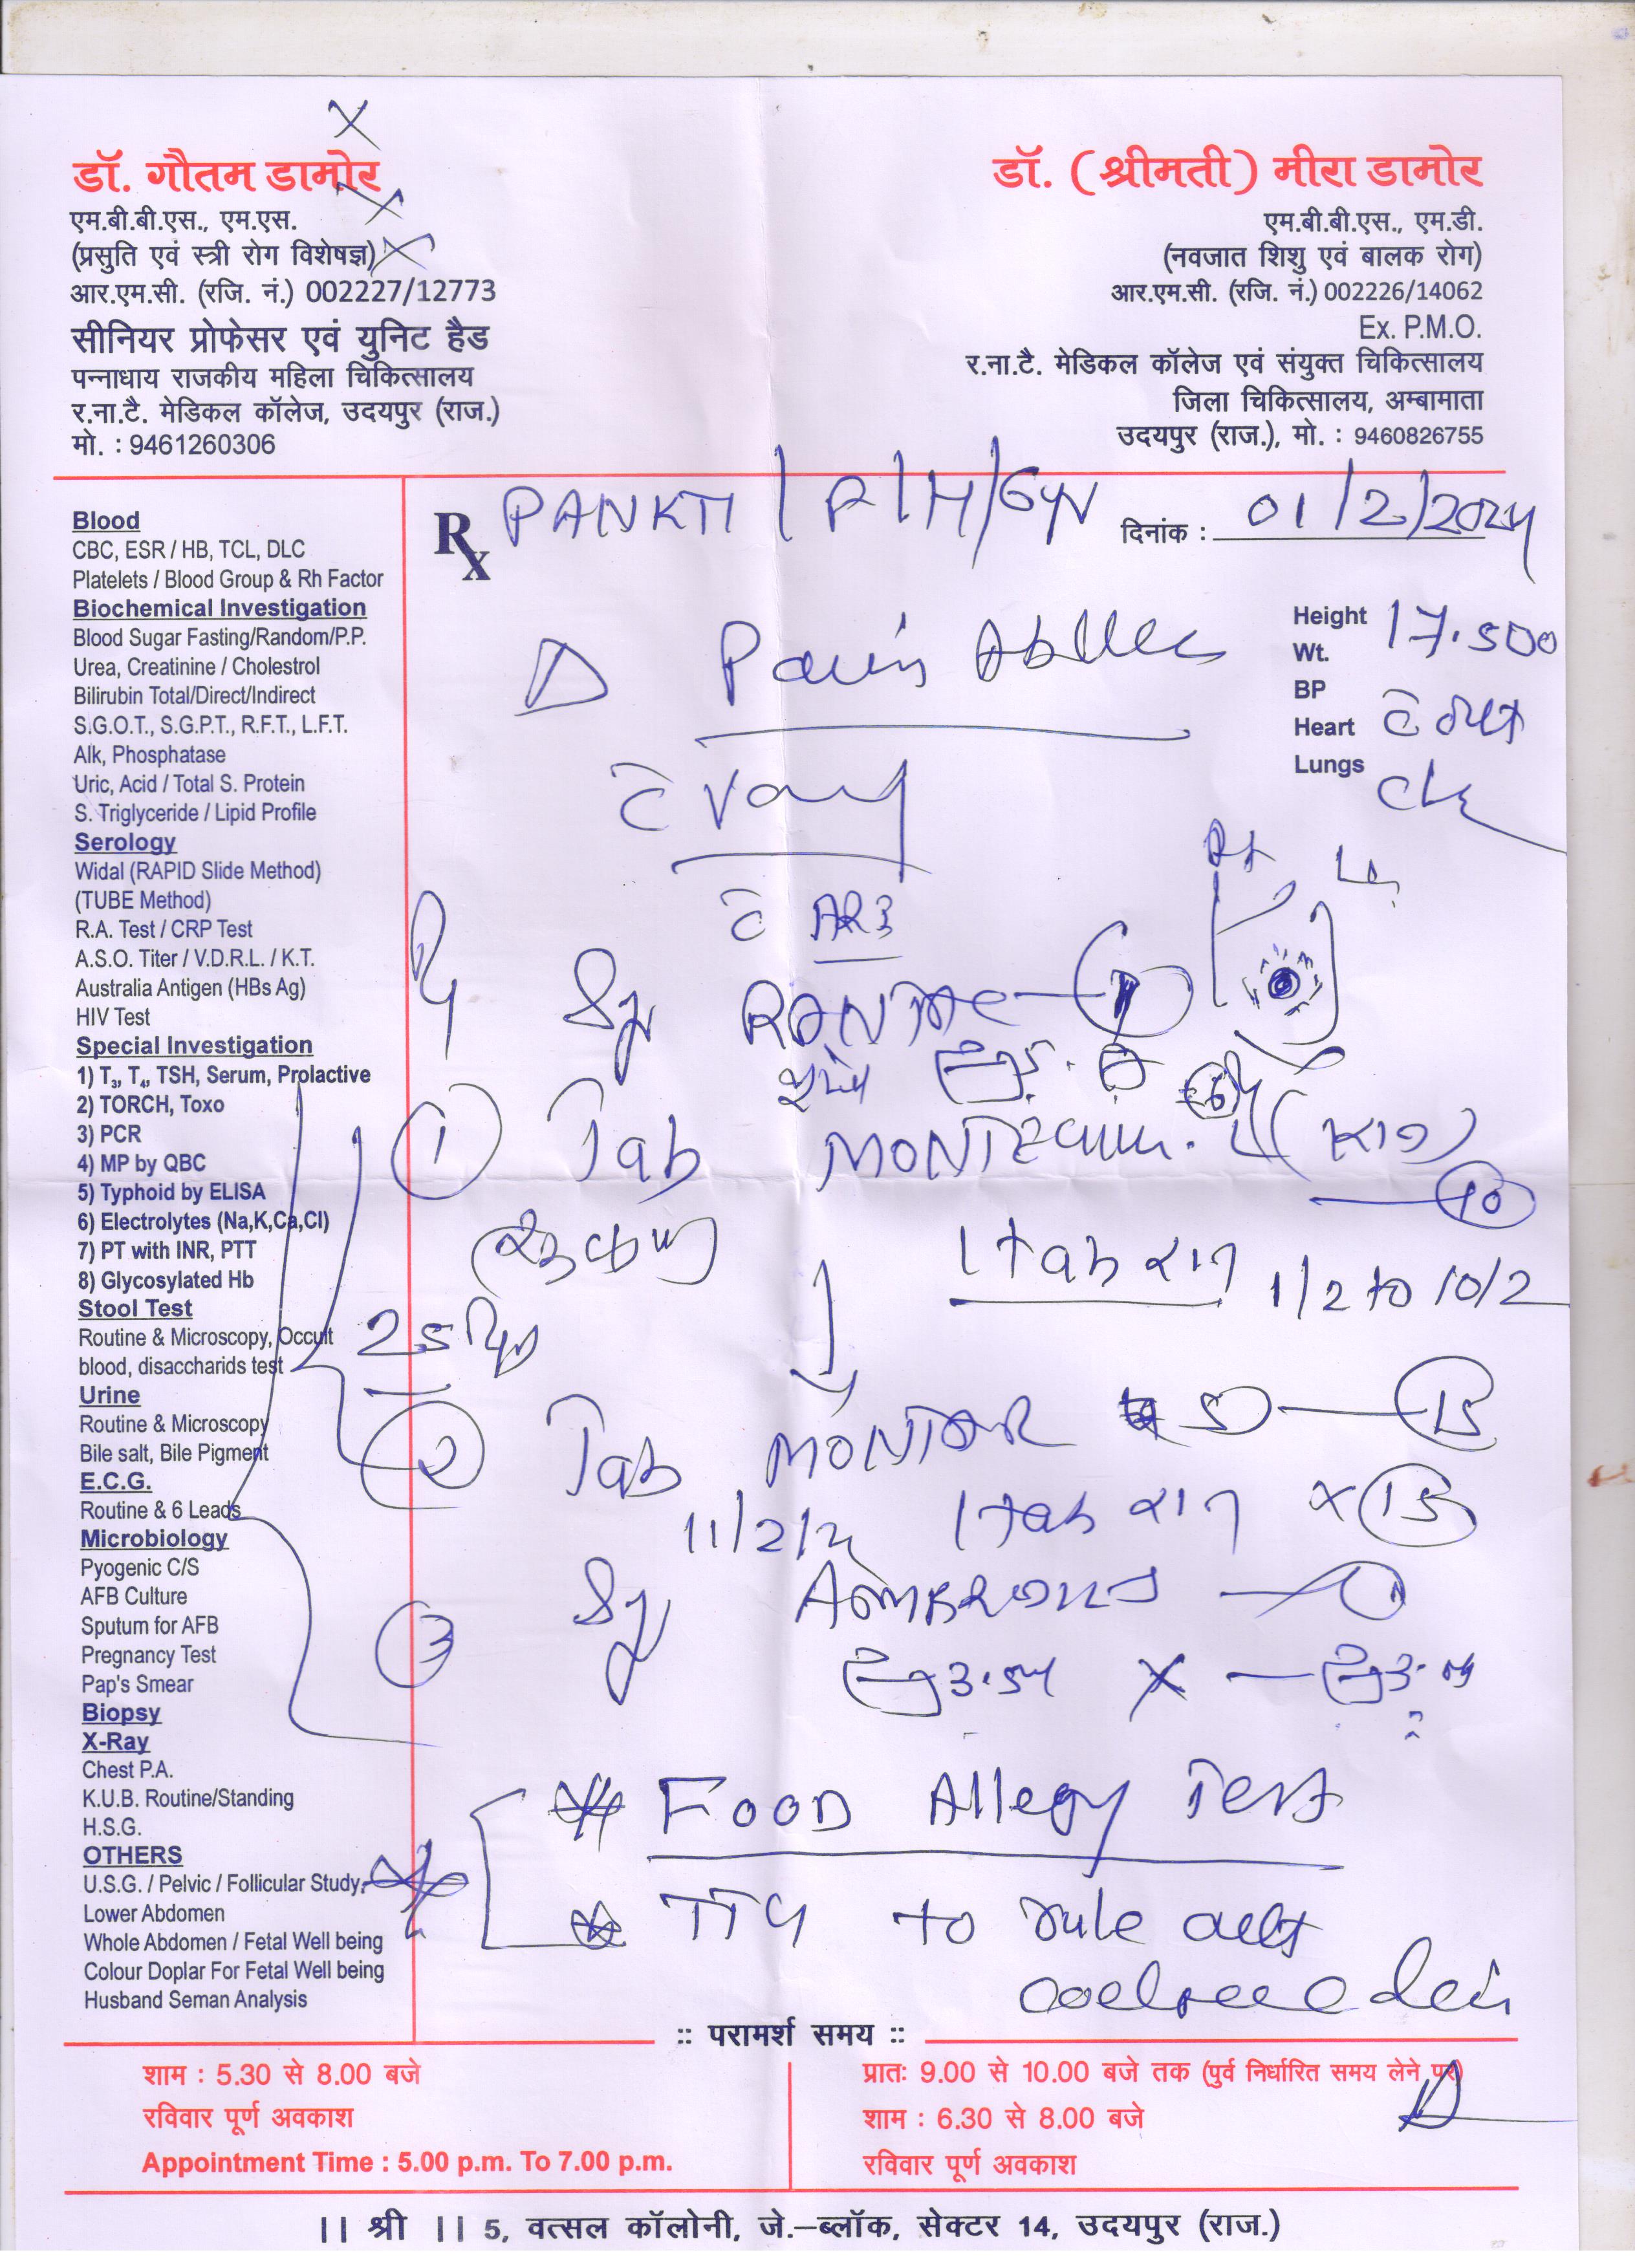 डॉ. गौतम डामोर
एम.बी.बी.एस., एम.एस.
(प्रसुति एवं स्त्री रोग विशेषज्ञ)
आर.एम.सी. (रजि. नं.) 002227/12773
सीनियर प्रोफेसर एवं युनिट हैड
पन्नाधाय राजकीय महिला चिकित्सालय
र.ना.टै. मेडिकल कॉलेज, उदयपुर (राज.)
मो. : 9461260306
डॉ. (श्रीमती) मीरा डामोर
एम.बी.बी.एस., एम.डी.
(नवजात शिशु एवं बालक रोग)
आर.एम.सी. (रजि. नं.) 002226/14062
Ex. P.M.O.
र.ना.टै. मेडिकल कॉलेज एवं संयुक्त चिकित्सालय
जिला चिकित्सालय, अम्बामाता
उदयपुर (राज.), मो. : 9460826755
Blood
CBC, ESR / HB, TCL, DLC
Platelets / Blood Group & Rh Factor
Biochemical Investigation
Blood Sugar Fasting/Random/P.P.
Urea, Creatinine / Cholestrol
Bilirubin Total/Direct/Indirect
S.G.O.T., S.G.P.T., R.F.T., L.F.T.
Alk, Phosphatase
Uric, Acid / Total S. Protein
S. Triglyceride / Lipid Profile
Serology
Widal (RAPID Slide Method)
(TUBE Method)
R.A. Test / CRP Test
A.S.O. Titer / V.D.R.L. / K.T.
Australia Antigen (HBs Ag)
HIV Test
Special Investigation
1) T₃, T₄, TSH, Serum, Prolactive
2) TORCH, Toxo
3) PCR
4) MP by QBC
5) Typhoid by ELISA
6) Electrolytes (Na,K,Ca,Cl)
7) PT with INR, PTT
8) Glycosylated Hb
Stool Test
Routine & Microscopy, Occult
blood, disaccharids test
Urine
Routine & Microscopy
Bile salt, Bile Pigment
E.C.G.
Routine & 6 Leads
Microbiology
Pyogenic C/S
AFB Culture
Sputum for AFB
Pregnancy Test
Pap's Smear
Biopsy
X-Ray
Chest P.A.
K.U.B. Routine/Standing
H.S.G.
OTHERS
U.S.G. / Pelvic / Follicular Study,
Lower Abdomen
Whole Abdomen / Fetal Well being
Colour Doplar For Fetal Well being
Husband Seman Analysis
Rx PANKTI / F / H / 6yr दिनांक : 01/2/2024
Height
Wt. 17.500
BP
Heart
Lungs
Pain
Rt Lt
Syr
1 Tab (रात)
10
1 tab रात 1/2 to 10/2
2 Tab 15
11/2/24 1 tab रात x 15
3 Syr
* FOOD Allergy Test
* TTG to rule out
:: परामर्श समय ::
शाम : 5.30 से 8.00 बजे
रविवार पूर्ण अवकाश
Appointment Time : 5.00 p.m. To 7.00 p.m.
प्रातः 9.00 से 10.00 बजे तक (पुर्व निर्धारित समय लेने पर)
शाम : 6.30 से 8.00 बजे
रविवार पूर्ण अवकाश
|| श्री || 5, वत्सल कॉलोनी, जे.–ब्लॉक, सेक्टर 14, उदयपुर (राज.)